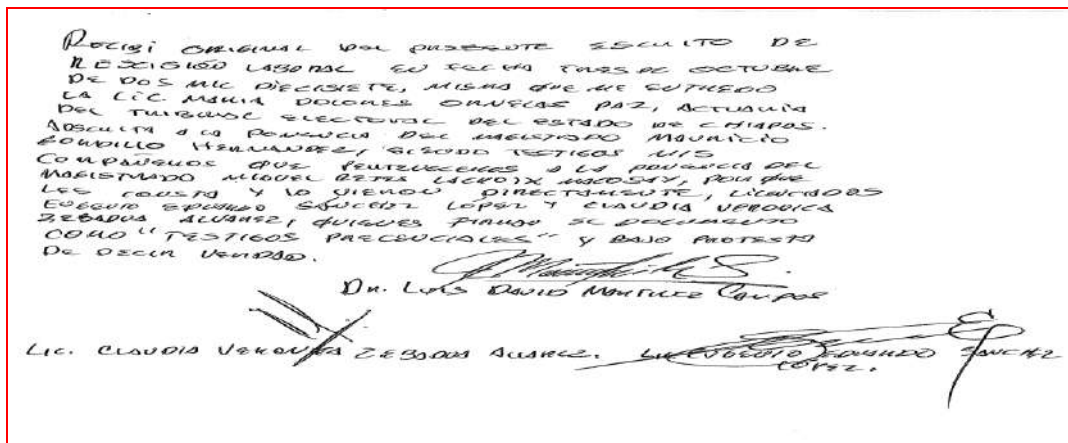 Recibí ORIGINAL DEL PRESENTE ESCRITO DE
RESCISIÓN LABORAL EN FECHA TRES DE OCTUBRE
DE DOS MIL DIECISIETE, MISMA QUE ME ENTREGO
LA LIC. MARIA DOLORES ORNELAS PAZ, ACTUARIA
DEL TRIBUNAL ELECTORAL DEL ESTADO DE CHIAPAS.
ADSCRITA A LA PONENCIA DEL MAGISTRADO MAURICIO
GORDILLO HERNANDEZ, SIENDO TESTIGOS MIS
COMPAÑEROS QUE PERTENECEMOS A LA PONENCIA DEL
MAGISTRADO MIGUEL REYES LACROIX MACOSAY, POR QUE
LES CONSTA Y LO VIERON DIRECTAMENTE, LICENCIADOS
EUGENIO EDUARDO SÁNCHEZ LÓPEZ Y CLAUDIA VERÓNICA
ZEBADUA ALVAREZ, QUIENES FIRMAN EL DOCUMENTO
COMO "TESTIGOS PRECENCIALES" Y BAJO PROTESTA
DE DECIR VERDAD.
DR. LUIS DAVID MARTINEZ CAMPOS
LIC. CLAUDIA VERONICA ZEBADUA ALVAREZ. LIC EUGENIO EDUARDO SANCHEZ
LÓPEZ.